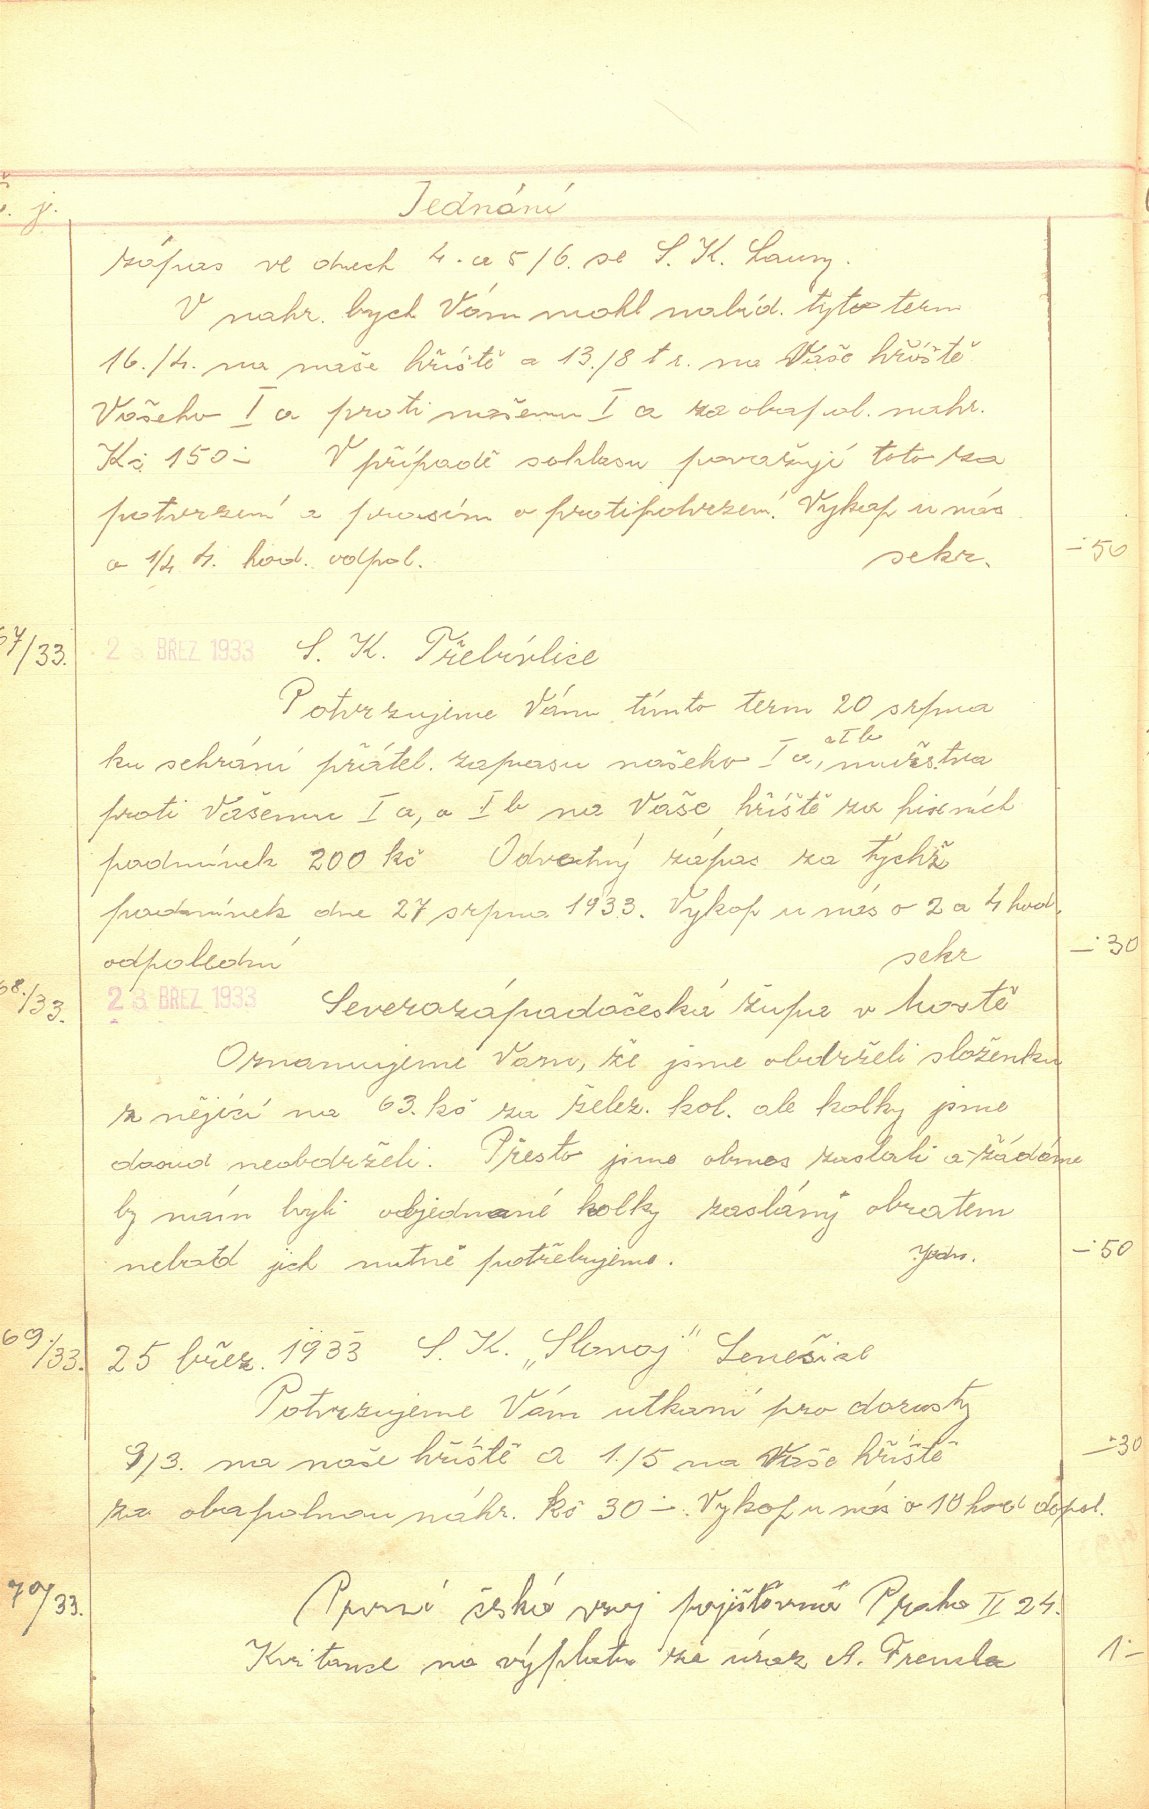 č. j. Jednání
zápas ve dnech 4. a 5/6. se S. K. Louny.
V nahr. bych Vám mohl nabíd. tyto term
16./4. na naše hříště a 13./8 t r. na Vaše hříště
Vašeho I a proti našemu I a za obapol. nahr.
Kč 150.- V případě sohlasu považuji toto za
potvrzení a prosím o protipotvrzení. Výkop u nás
o 1/4 4. hod. odpol. sekr. -.50
67/33. 23. BŘEZ. 1933 S. K. Třebívlice
Potvrzujeme Vám tímto term 20 srpna
ku sehrání přátel. zapasu našeho I a, a I b mužstva
proti Vašemu I a, a I b na Vaše hříště za
podmínek 200 kč Odvetný zápas za týchž
podmínek dne 27 srpna 1933. Výkop u nás o 2 a 4 hod.
odpoledni sekr -.30
68./33. 23. BŘEZ. 1933 Severozápadočeská župa v Mostě
Oznamujeme Vam, že jsme obdrželi složenku
znějící na 63. kč za želez. kol. ale kolky jsme
dosud neobdrželi. Přesto jsme obnos zaslali a žádáme
by nám byli objednané kolky zaslány obratem
neboťd jich nutně potřebujeme. Jedn. -.50
69./33. 25 břez. 1933 S. K. „Slavoj" Lenešice
Potvrzujeme Vám utkaní pro dorosty
9/3. na naše hříště a 1./5 na Vaše hříště -.30
za obapolnou náhr. kč 30.-. Vykop u nás o 10 hod dopol.
70/33. První česká vzaj pojišťovna Praha II 24.
Kvitance na výplatu za úraz A. Frencla 1.-